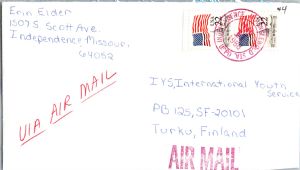 Erin Eider
1507 S. Scott Ave.
Independence Missouri
64052
22 22
#4
VIA AIR MAIL
IYS, International Youth
Service
PB 125, SF-20101
Turku, Finland
AIR MAIL